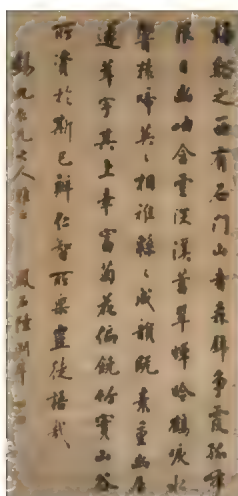 梅谿之西有石门山者森壁争霞孤峯
限日幽岫含雲深溪蓄翠蟬吟鶴唳水
響猿啼英〻相雜緜〻成韻既素重幽居
遂葺宇其上幸富菊花偏饒竹實山谷
所資於斯已辦仁智所樂豈徒語哉
大人雅 鳳石陸潤庠